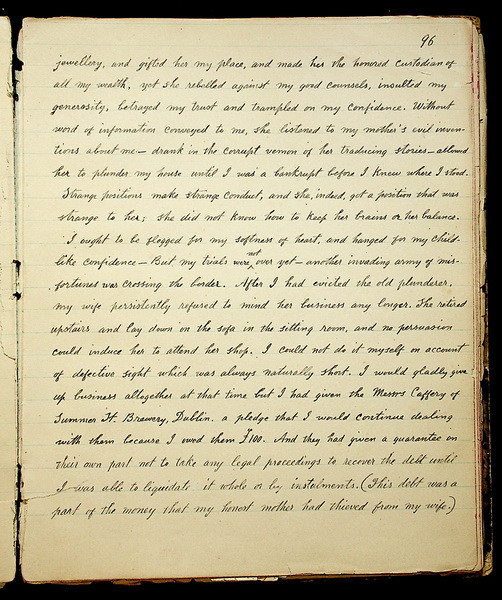 96
jewellery, and gifted her my place, and made her the honored custodian of
all my wealth, yet she rebelled against my good counsels, insulted my
generosity, betrayed my trust and trampled on my confidence. Without
word of information conveyed to me, she listened to my mother's evil inven-
tions about me — drank in the corrupt venom of her traducing stories — allowed
her to plunder my house until I was a bankrupt before I knew where I stood.
Strange positions make strange conduct, and she, indeed, got a position that was
strange to her; she did not know how to keep her brains or her balance.
I ought to be flogged for my softness of heart, and hanged for my child-
like confidence — But my trials were not over yet — another invading army of mis-
fortunes was crossing the border. After I had evicted the old plunderer,
my wife persistently refused to mind her business any longer. She retired
upstairs and lay down on the sofa in the sitting room, and no persuasion
could induce her to attend her shop. I could not do it myself on account
of defective sight which was always naturally short. I would gladly give
up business altogether at that time but I had given the Messrs Caffery of
Summer Ht. Brewery, Dublin. a pledge that I would continue dealing
with them because I owed them £100. And they had given a guarantee on
their own part not to take any legal proceedings to recover the debt until
I was able to liquidate it whole or by instalments. (This debt was a
part of the money that my honest mother had thieved from my wife.)